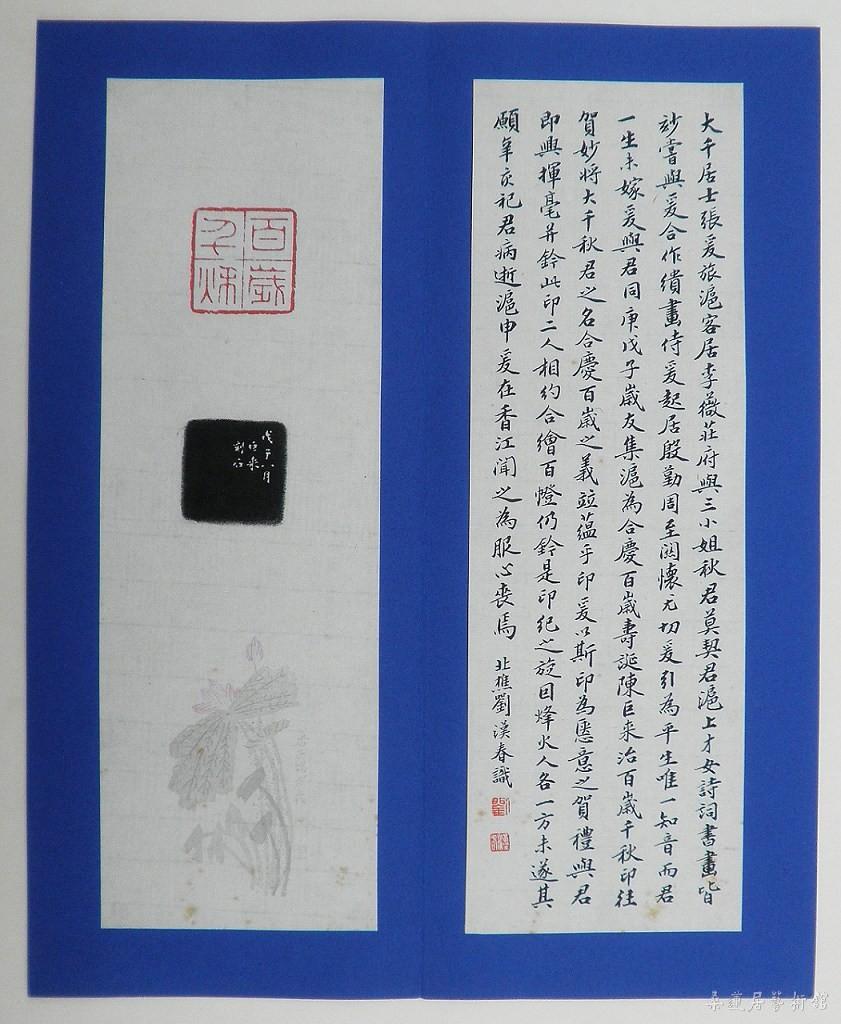 大千居士張爰旅滬客居李薇莊府與三小姐秋君莫契君滬上才女詩詞書畫皆
妙嘗與爰合作繢畫侍爰起居殷勤周至關懷尤切爰引為平生唯一知音而君
一生未嫁爰與君同庚戊子歲友集滬為合慶百歲壽誕陳巨來治百歲千秋印往
賀妙將大千秋君之名合慶百歲之義竝蘊乎印爰以斯印為愜意之賀禮與君
即興揮毫并鈐此印二人相約合繪百幀仍鈐是印紀之旋因烽火人各一方未遂其
願辛亥祀君病逝滬申爰在香江聞之為服心喪焉 北樵劉漢春識
百歲
千秋
戊子八月
巨來
刻石
集蓮居藝術館